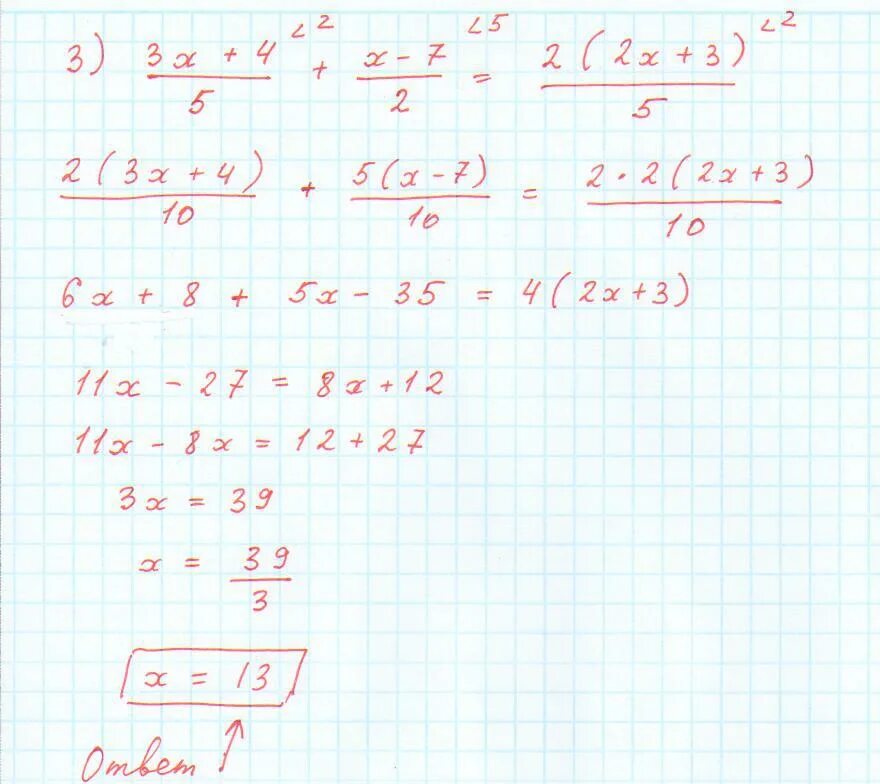 3) (3x + 4)/5 ∠2 + (x - 7)/2 ∠5 = 2(2x + 3)/5 ∠2
2(3x + 4)/10 + 5(x - 7)/10 = 2 · 2(2x + 3)/10
6x + 8 + 5x - 35 = 4(2x + 3)
11x - 27 = 8x + 12
11x - 8x = 12 + 27
3x = 39
x = 39/3
x = 13
Ответ